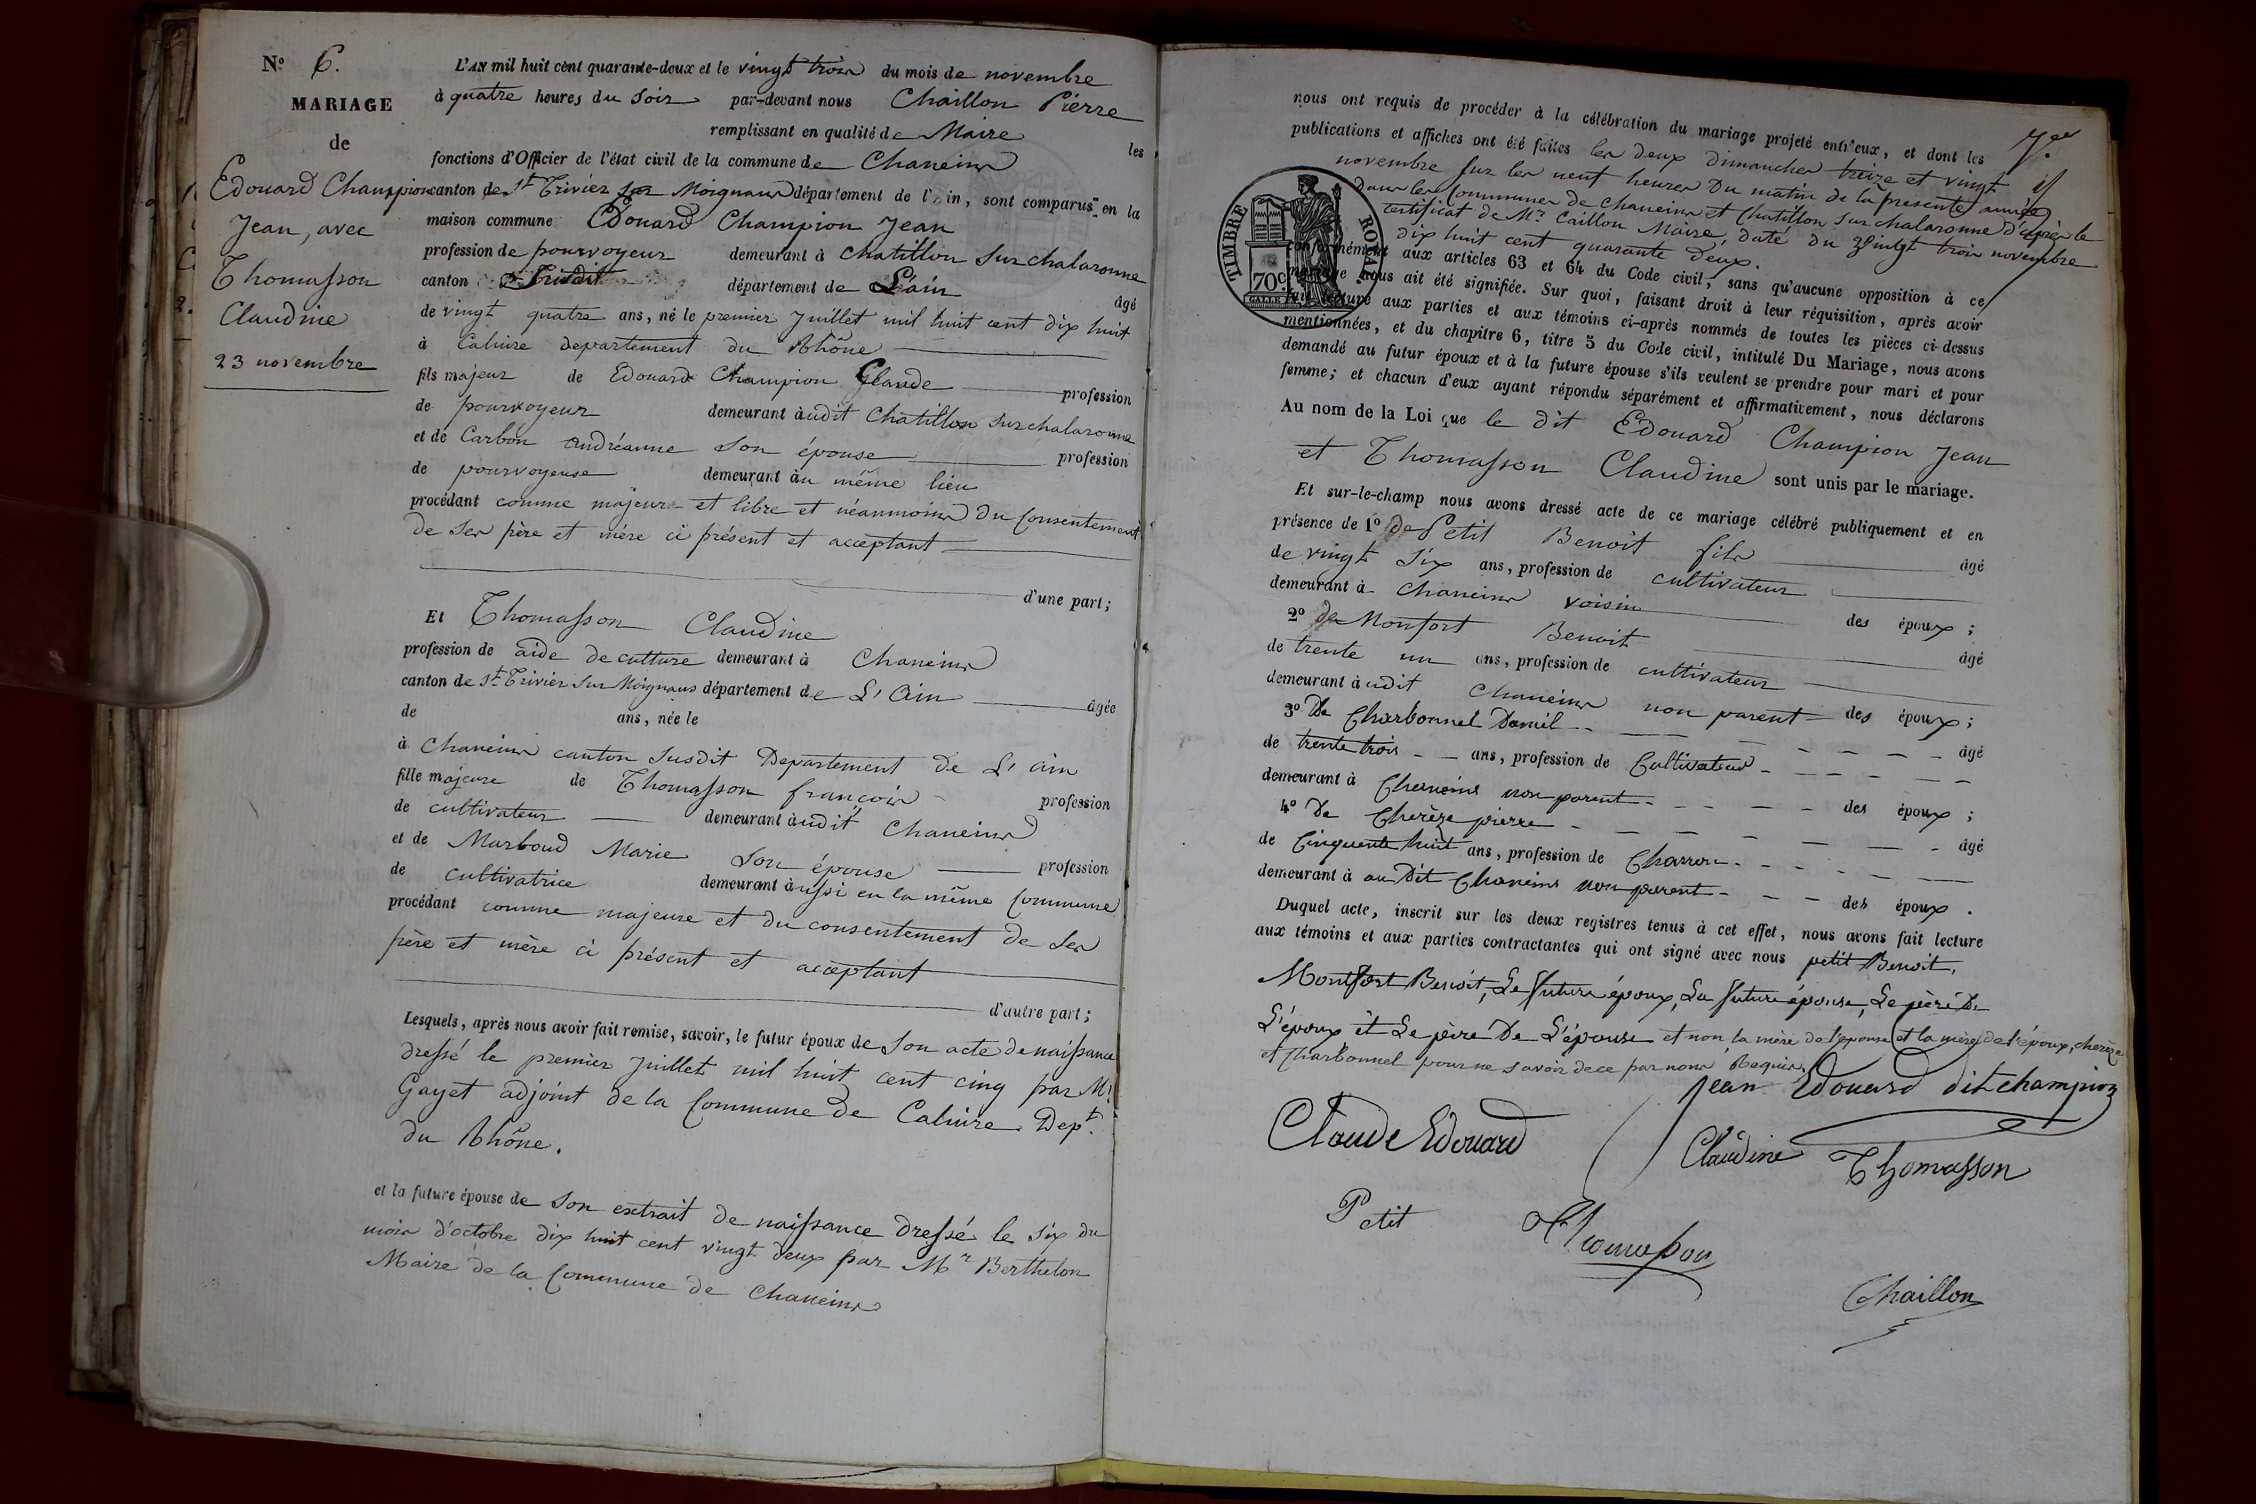 N.º 6.
MARIAGE
de
Edouard Champion
Jean, avec
Thomasson
Claudine
23 novembre
L'AN mil huit cent quarante-deux et le vingt trois du mois de novembre
à quatre heures du soir par-devant nous Chaillon Pierre
remplissant en qualité de Maire les
fonctions d'Officier de l'état civil de la commune de Chaneins
canton de St Trivier sur Moignans département de l'Ain, sont comparus en la
maison commune Edouard Champion Jean
profession de pourvoyeur demeurant à Chatillon sur chalaronne
canton susdit département de L'ain âgé
de vingt quatre ans, né le premier Juillet mil huit cent dix huit
à Caluire departement du Rhône
fils majeur de Edouard Champion Claude profession
de pourvoyeur demeurant àudit Chatillon sur chalaronne
et de Carbon Andréanne son épouse profession
de pourvoyeuse demeurant àu même lieu
procédant comme majeur et libre et néanmoins du Consentement
de ses père et mère ci présent et acceptant
d'une part;
Et Thomasson Claudine
profession de aide de culture demeurant à Chaneins
canton de St Trivier sur Moignans département de L'Ain âgée
de ans, née le
à Chaneins canton susdit Departement de L'ain
fille majeure de Thomasson françois profession
de cultivateur demeurant àudit Chaneins
et de Marboud Marie son épouse profession
de cultivatrice demeurant àussi en la même Commune
procédant comme majeure et du consentement de ses
père et mère ci présent et acceptant
d'autre part;
Lesquels, après nous avoir fait remise, savoir, le futur époux de son acte de naissance
dressé le premier Juillet mil huit cent cinq par Mr
Gayet adjoint de la Commune de Caluire Dept.
du Rhône.
et la future épouse de son extrait de naissance dressé le six du
mois d'octobre dix huit cent vingt deux par Mr Berthelon
Maire de la Commune de Chaneins
nous ont requis de procéder à la célébration du mariage projeté entr'eux, et dont les
publications et affiches ont été faites les deux dimanches treize et vingt
novembre sur les neuf heures du matin de la présente année
dans les Communes de Chaneins et Chatillon sur chalaronne d'après le
certificat de Mr Caillon Maire, daté du vingt trois novembre
dix huit cent quarante deux.
TIMBRE ROYAL
70c
conformément aux articles 63 et 64 du Code civil, sans qu'aucune opposition à ce
mariage nous ait été signifiée. Sur quoi, faisant droit à leur réquisition, après avoir
fait lecture aux parties et aux témoins ci-après nommés de toutes les pièces ci-dessus
mentionnées, et du chapitre 6, titre 5 du Code civil, intitulé Du Mariage, nous avons
demandé au futur époux et à la future épouse s'ils veulent se prendre pour mari et pour
femme; et chacun d'eux ayant répondu séparément et affirmativement, nous déclarons
Au nom de la Loi que le dit Edouard Champion Jean
et Thomasson Claudine sont unis par le mariage.
Et sur-le-champ nous avons dressé acte de ce mariage célébré publiquement et en
présence de 1º de Petit Benoit fils âgé
de vingt six ans, profession de cultivateur
demeurant à Chaneins voisin des époux;
2º de Monfort Benoit âgé
de trente un ans, profession de cultivateur
demeurant àudit Chaneins non parent des époux;
3º De Charbonnel Daniel âgé
de trente trois ans, profession de Cultivateur
demeurant à Chaneins non parent des époux;
4º De Cherèze pierre âgé
de Cinquente huit ans, profession de Charron
demeurant à au Dit Chaneins non parent des époux.
Duquel acte, inscrit sur les deux registres tenus à cet effet, nous avons fait lecture
aux témoins et aux parties contractantes qui ont signé avec nous petit Benoit,
Montfort Benoit, Le futur époux, La future épouse, Le père De
L'époux et Le père De L'épouse et non la mère de l'épouse et la mère de l'époux, cherèze
et Charbonnel pour ne savoir de ce par nous Requis.
Jean Edouard dit champion
Claude Edouard
Claudine Thomasson
Petit
Thomasson
Chaillon